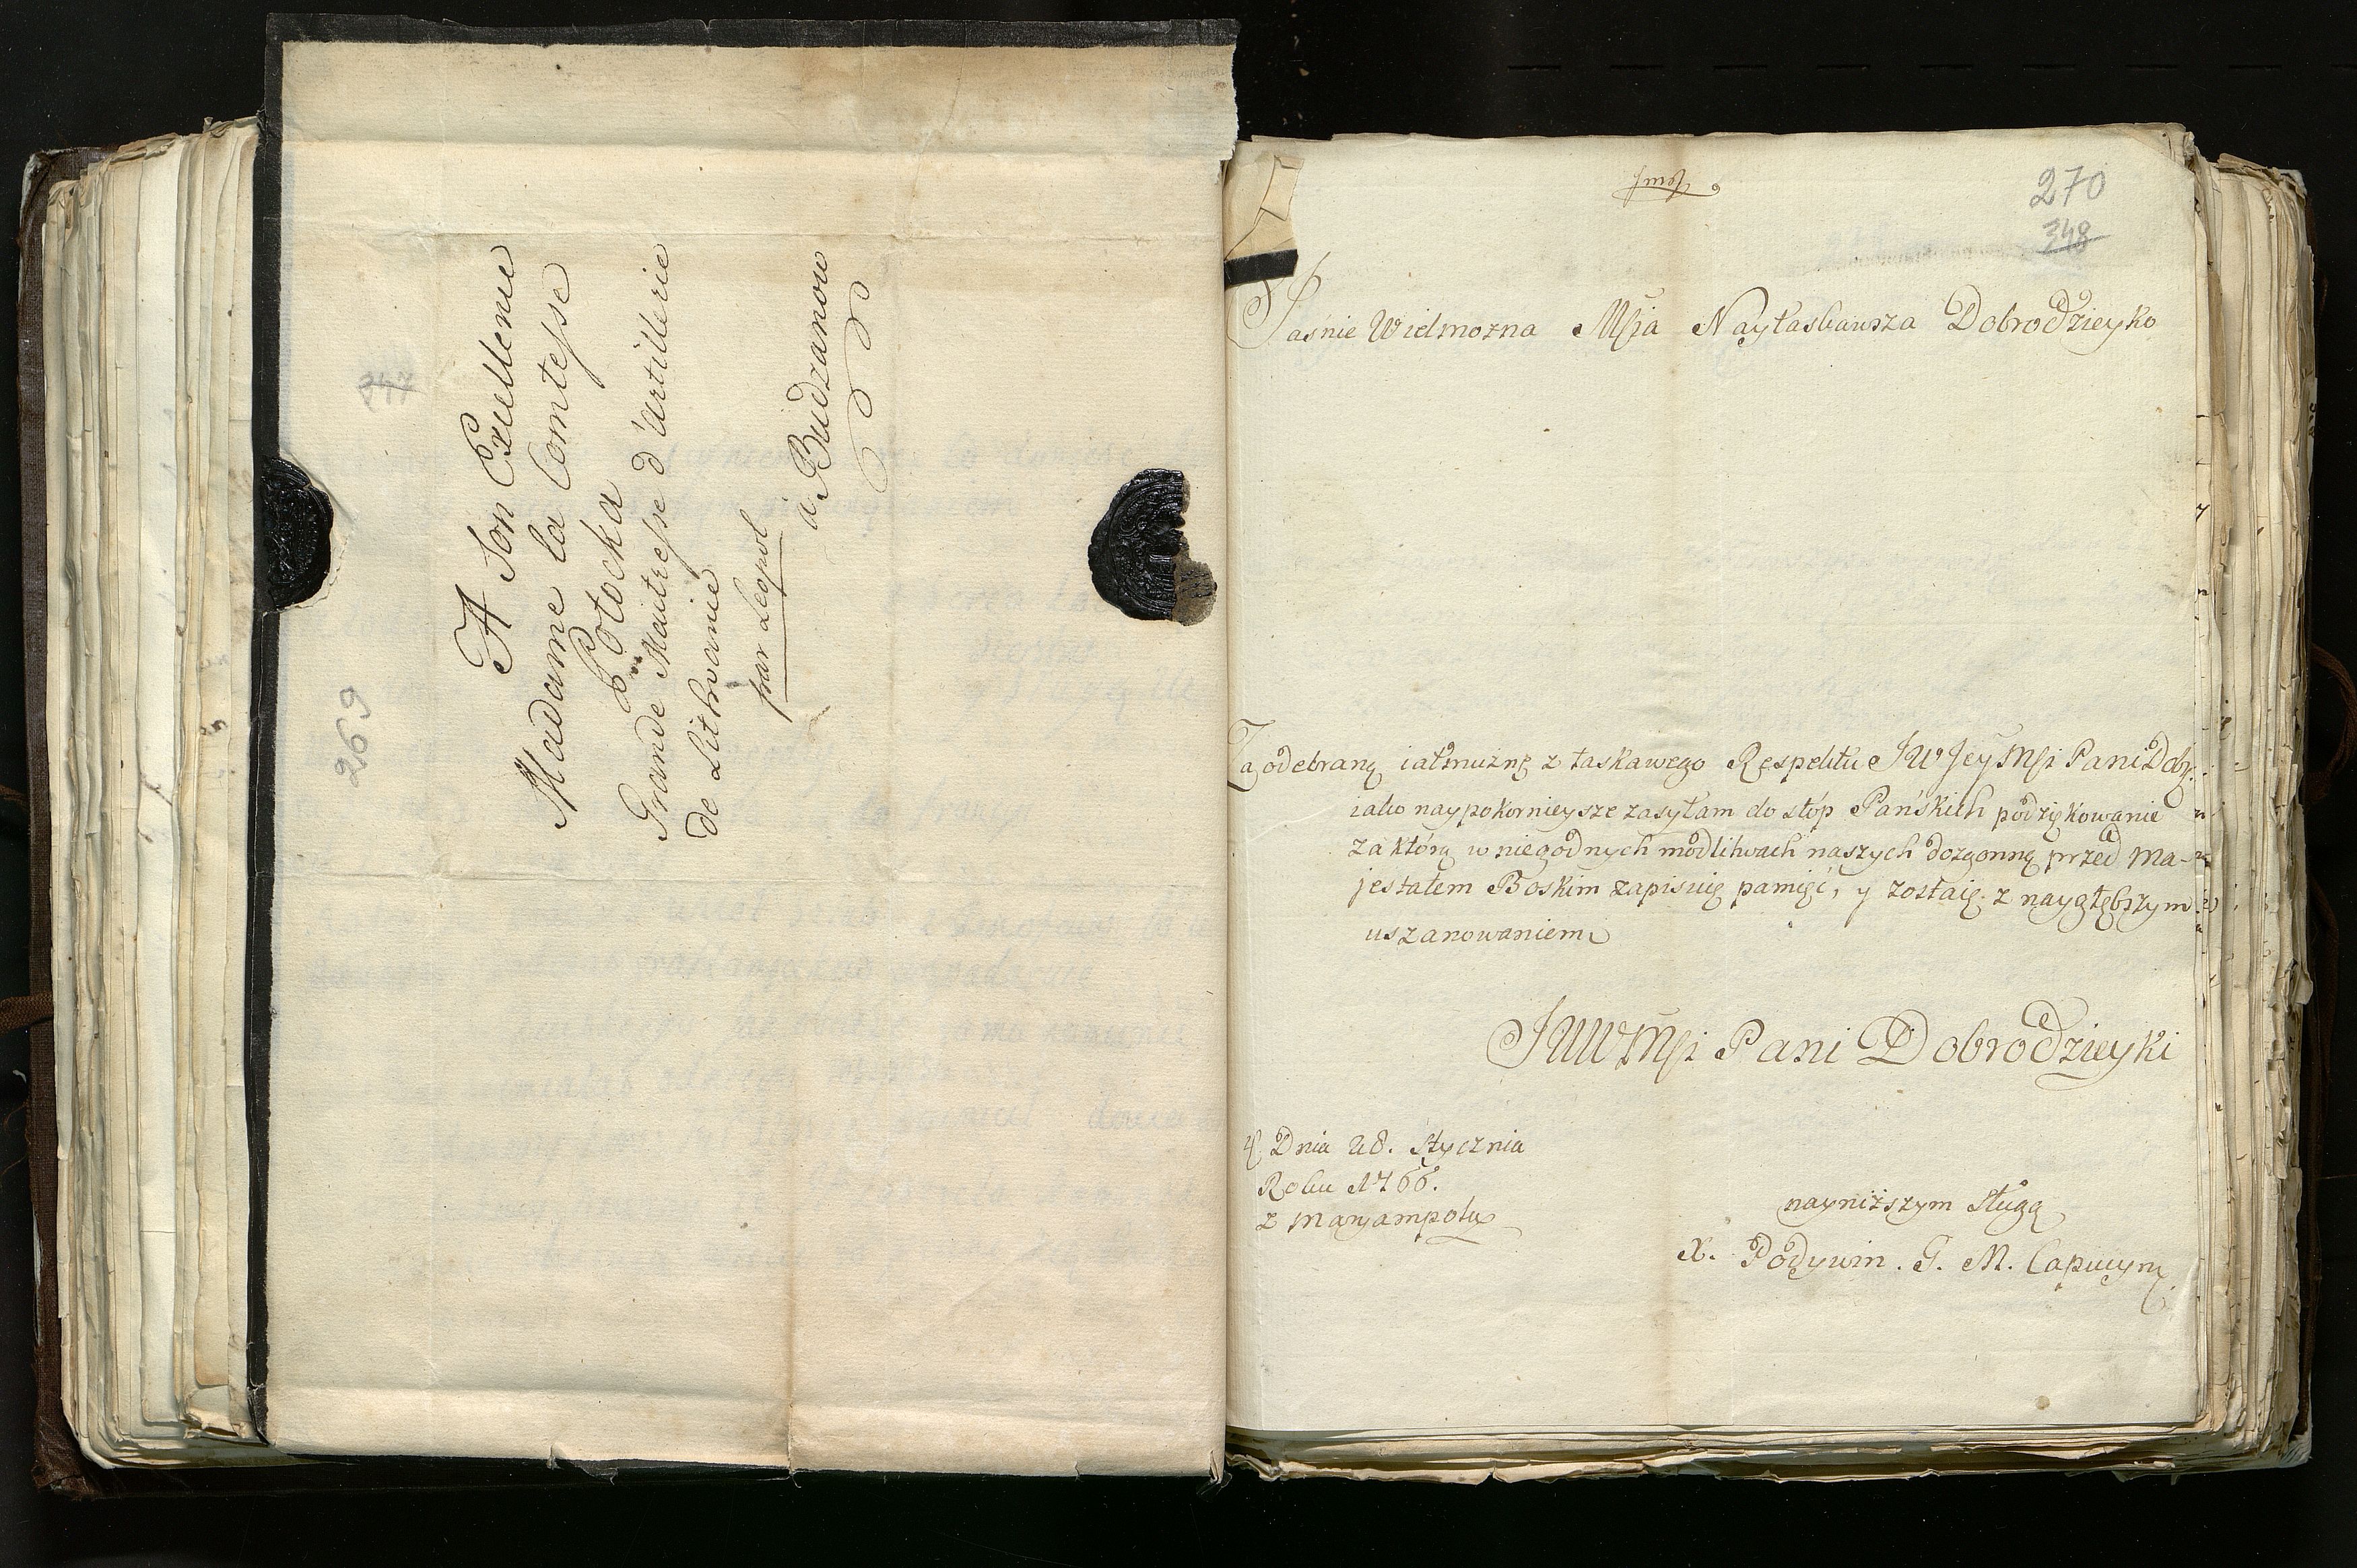 347
269
A Son Excellence
Madame la Comtesse
Potocka
Grande Maitresse d'Artillerie
de Lithvanie
par Leopol
a Budzanow
270
348
Jaśnie Wielmożna Mścia Nayłaskawsza Dobrodzieyko
Za odebraną iałmużnę z łaskawego Respektu JW Jey Mści Pani Dobr:
iako naypokornieysze zasyłam do stóp Pańskich podziękowanie
za którą w niegodnych modlitwach naszych dozgonną przed Ma-
jestatem Boskim zapisuię pamięć, y zostaię z naygłębszym
uszanowaniem
JWW Mści Pani Dobrodzieyki
Dnia 28. Stycznia
Roku 1766.
z Maryampola
nayniższym Sługą
X. G. M. Capucyn